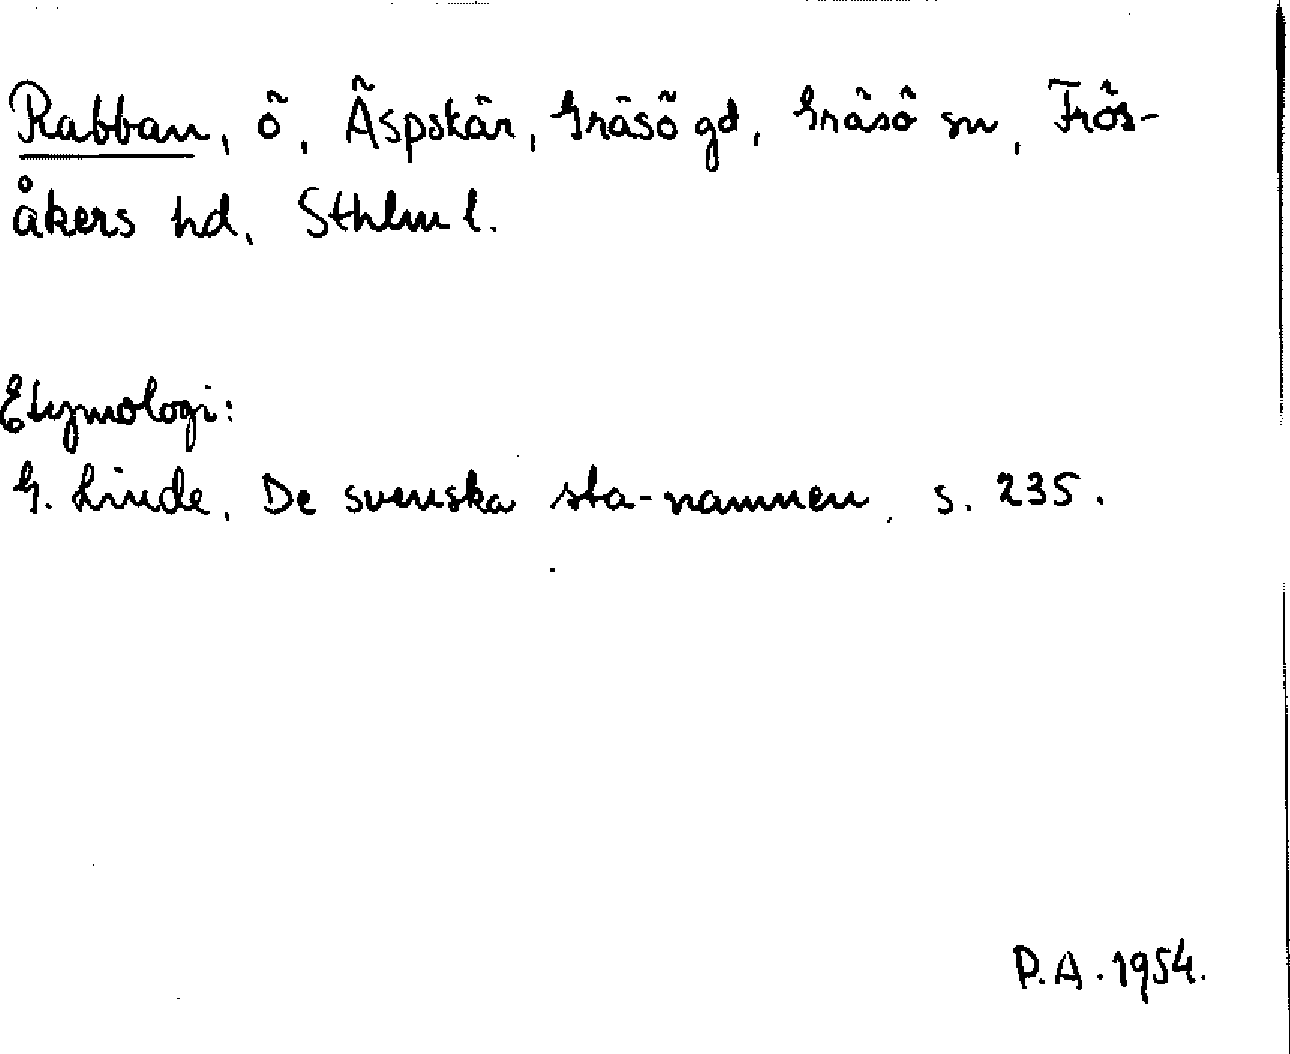 Rabban, ö, Äspskär, Gräsö gd, Gräsö sn, Frös-
åkers hd, Sthlm l.
Etymologi:
G. Linde, De svenska sta-namnen, s. 235.
P.A. 1954.